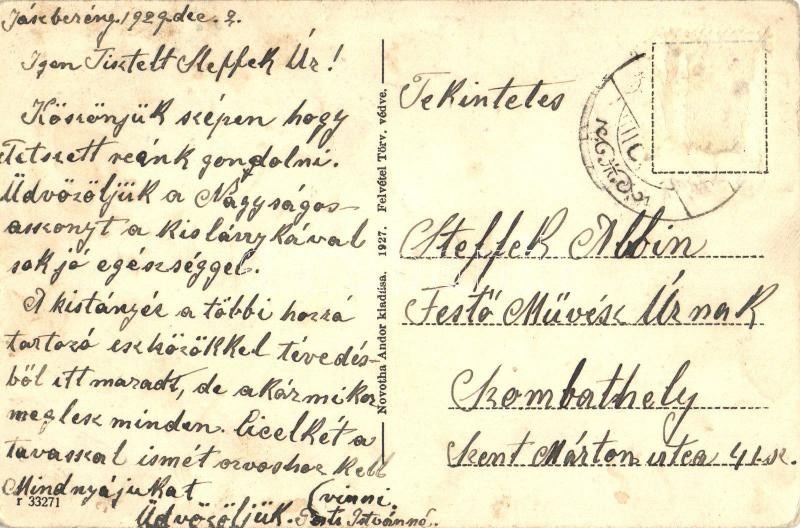 Jászberény, 1929. dec. 2.
Igen Tisztelt Steffek Úr!
Köszönjük szépen hogy
Tetszett reánk gondolni.
Üdvözöljük a Nagyságos-
asszonyt a kislánykával
sok jó egészséggel.
A kistányér a többi hozzá
tartozó eszközökkel tévedés-
ből itt maradt, de akármikor
meglesz minden. Cicelkét a
tavasszal ismét orvoshoz kell
Mindnyájukat (vinni.
Üdvözöljük. Istvánné.
r 33271
Novotha Andor kiadása. 1927. Felvétel Törv. védve.
Tekintetes
Steffek Albin
Festő Művész Úrnak
Szombathely
Szent Márton utca 41. sz.